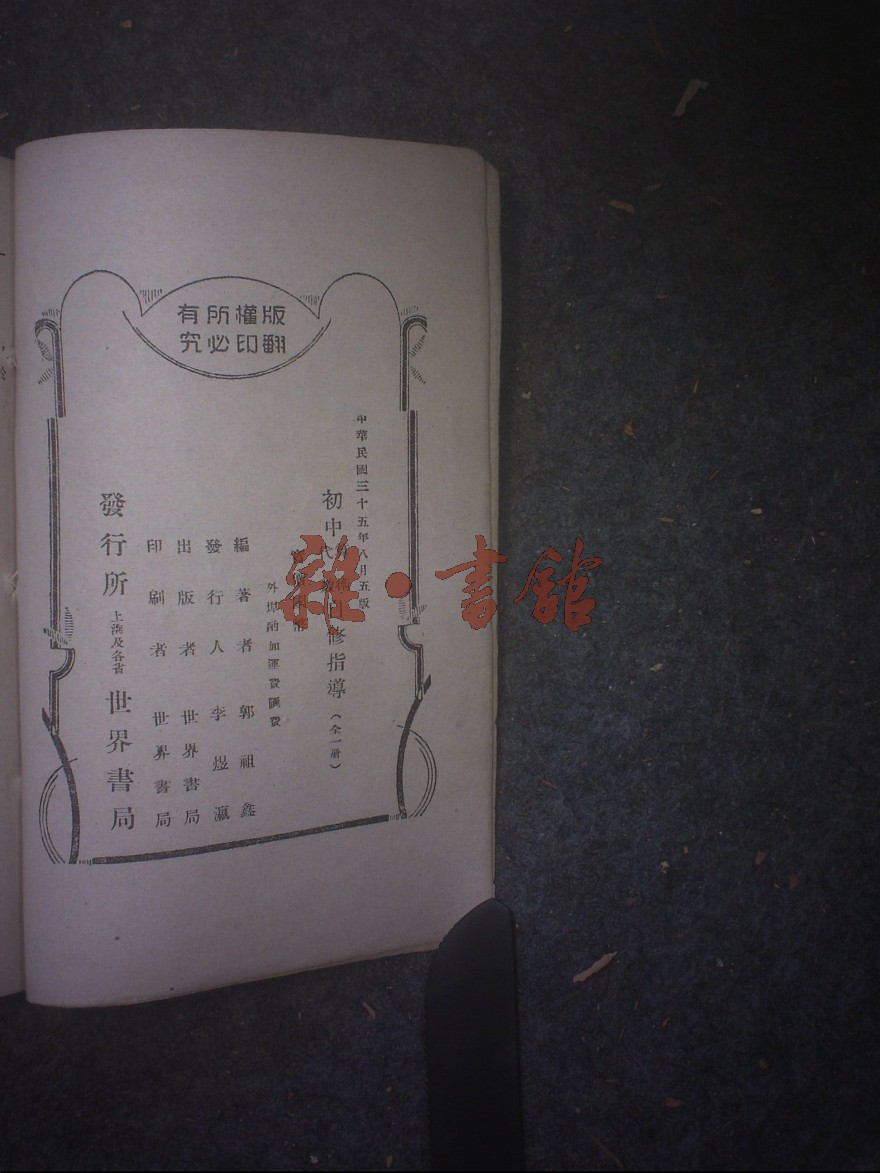 版權所有
翻印必究
中華民國三十五年八月五版
初中自修指導（全一册）
外埠酌加運費匯費
編著者 郭祖鑫
發行人 李煜瀛
出版者 世界書局
印刷者 世界書局
發行所 上海及各省 世界書局
雜·書館